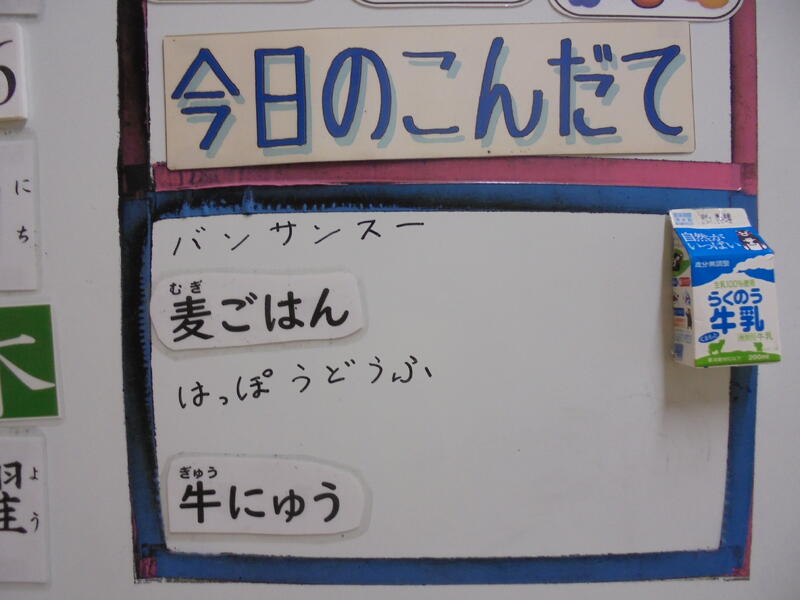 今日のこんだて
バンサンスー
むぎ
麦ごはん
はっぽうどうふ
ぎゅう
牛にゅう
自然が
いっぱい
成分無調整
生乳100%使用
らくのう
牛乳
200ml
にち
よう